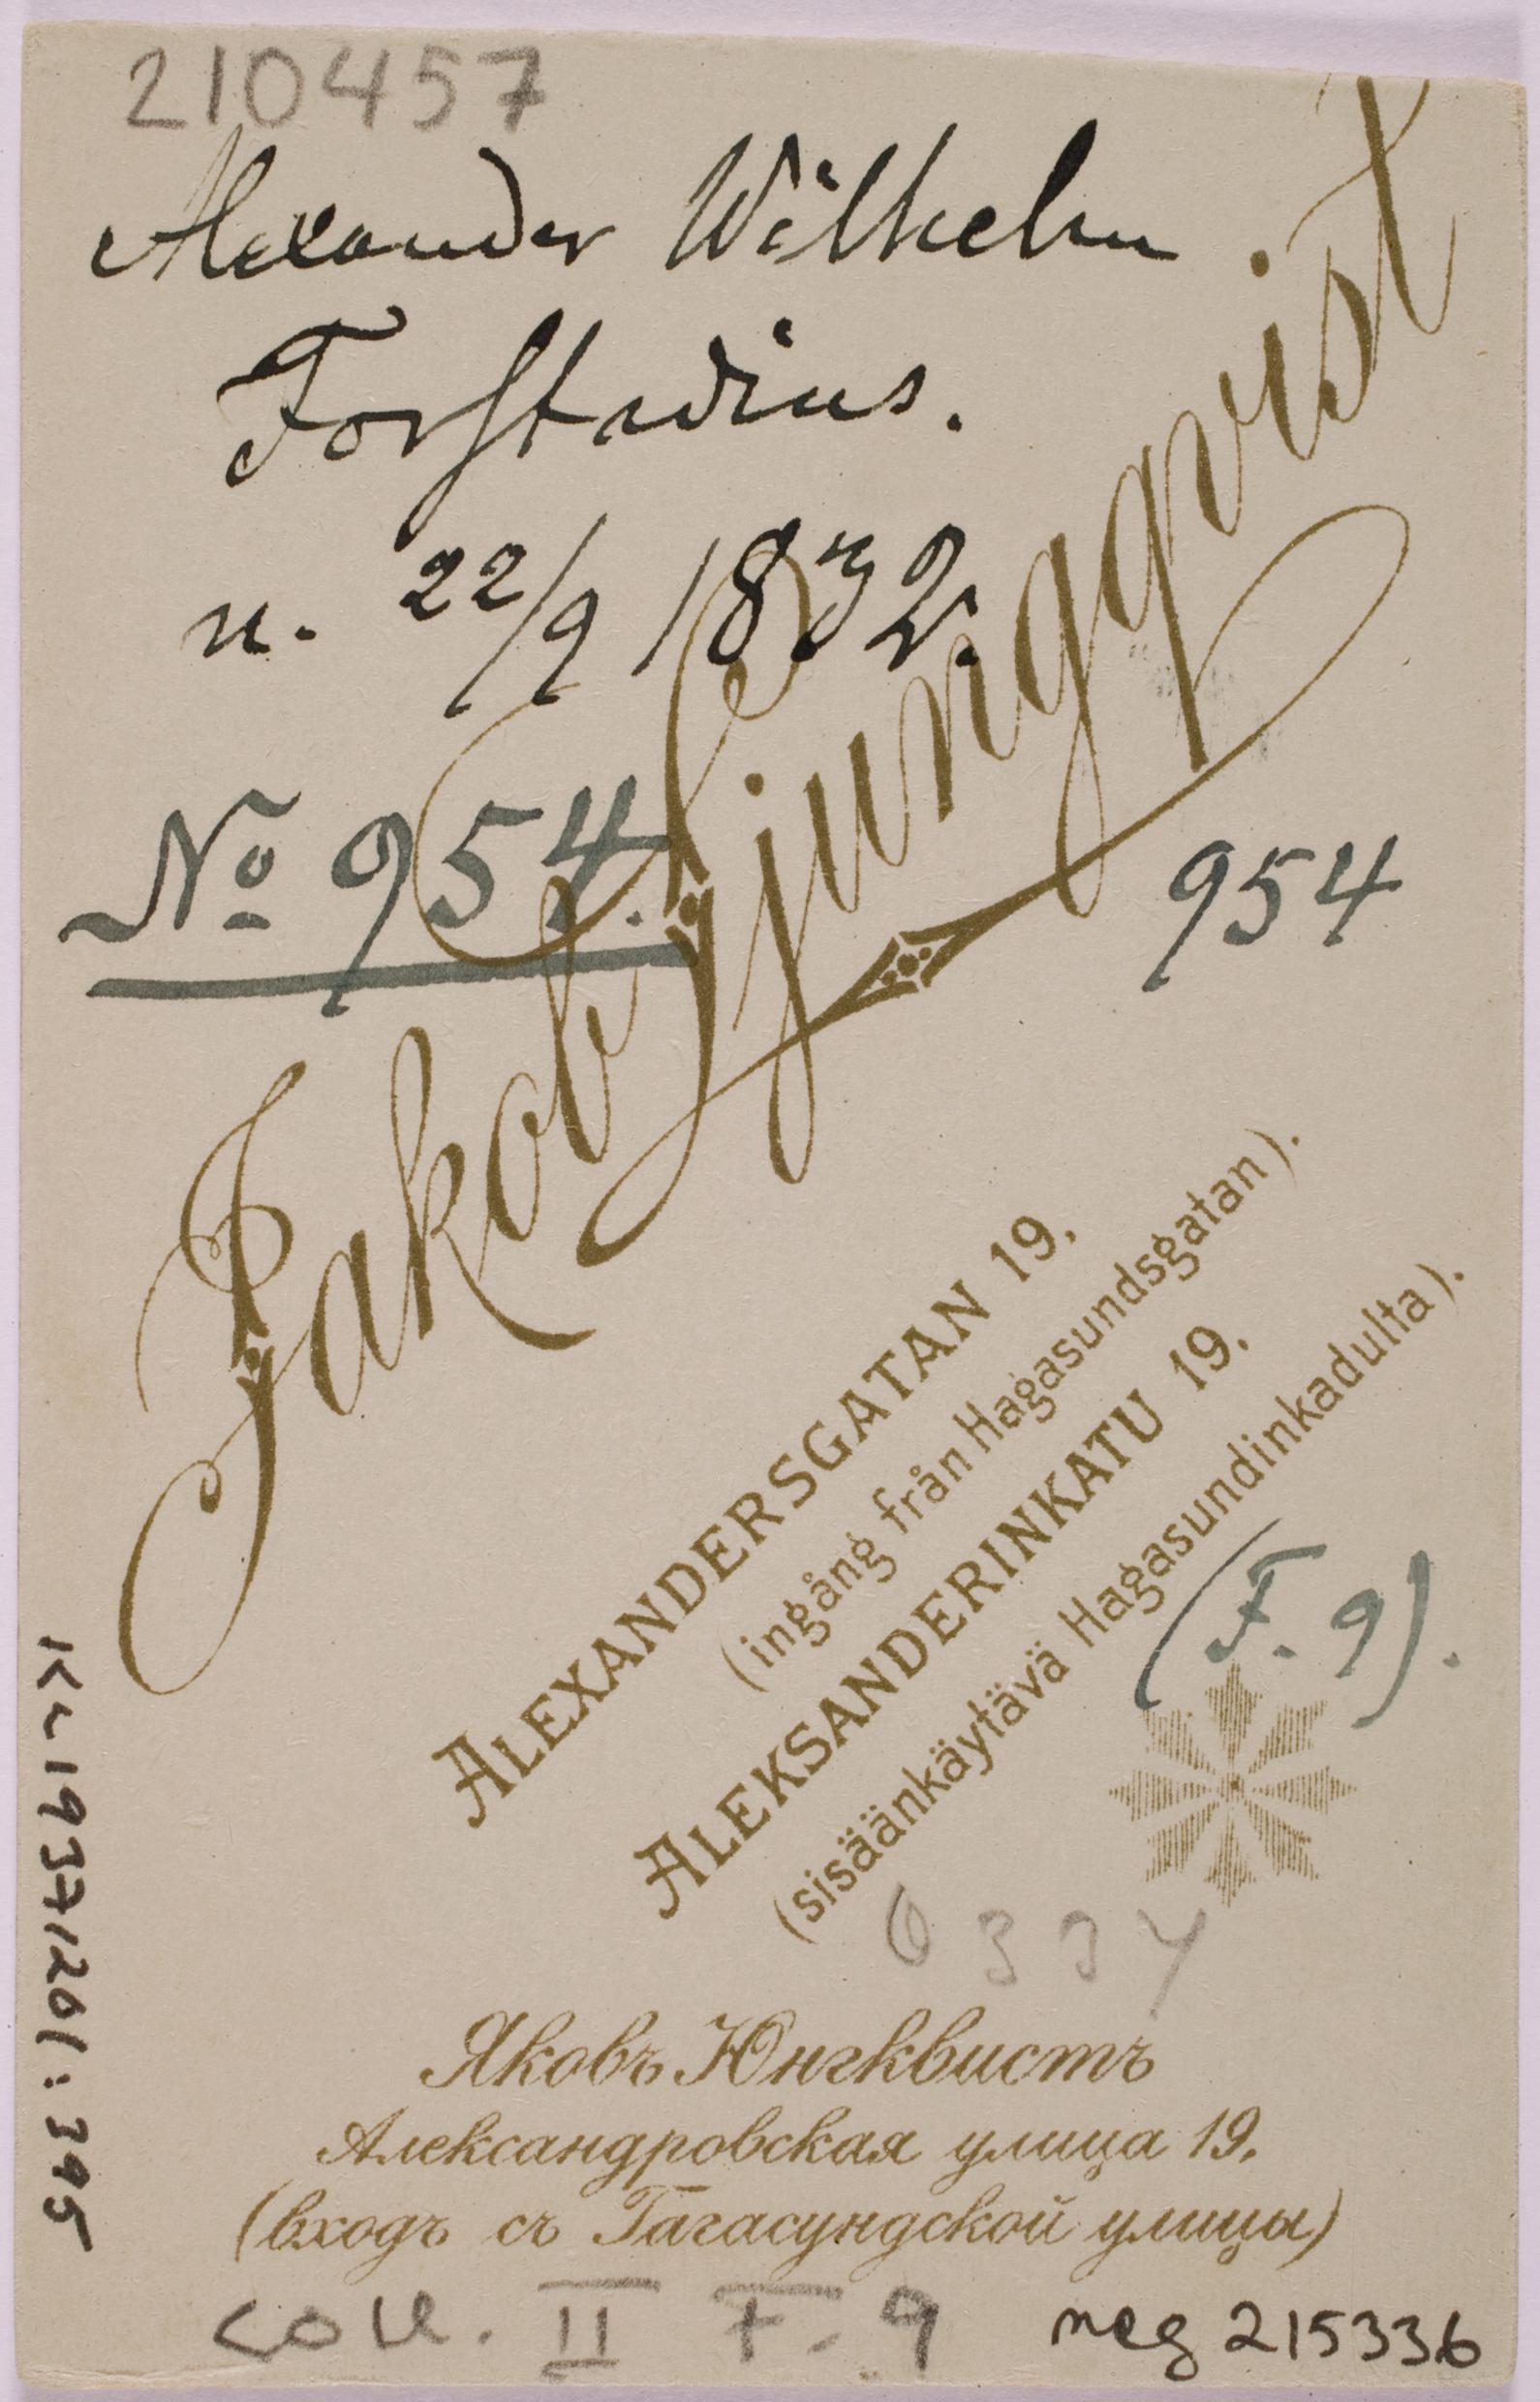 210457
Alexander Wilhelm
Forstadius.
n. 22/9 1832.
No 954.
954
Jakob Ljungqvist
ALEXANDERSGATAN 19.
(ingång från Hagasundsgatan).
ALEKSANDERINKATU 19.
(sisäänkäytävä Hagasundinkadulta).
(F. 9).
6334
Яковъ Юнгквистъ
Александровская улица 19.
(входъ съ Гагасундской улицы)
coll. II F. 9
neg 215336